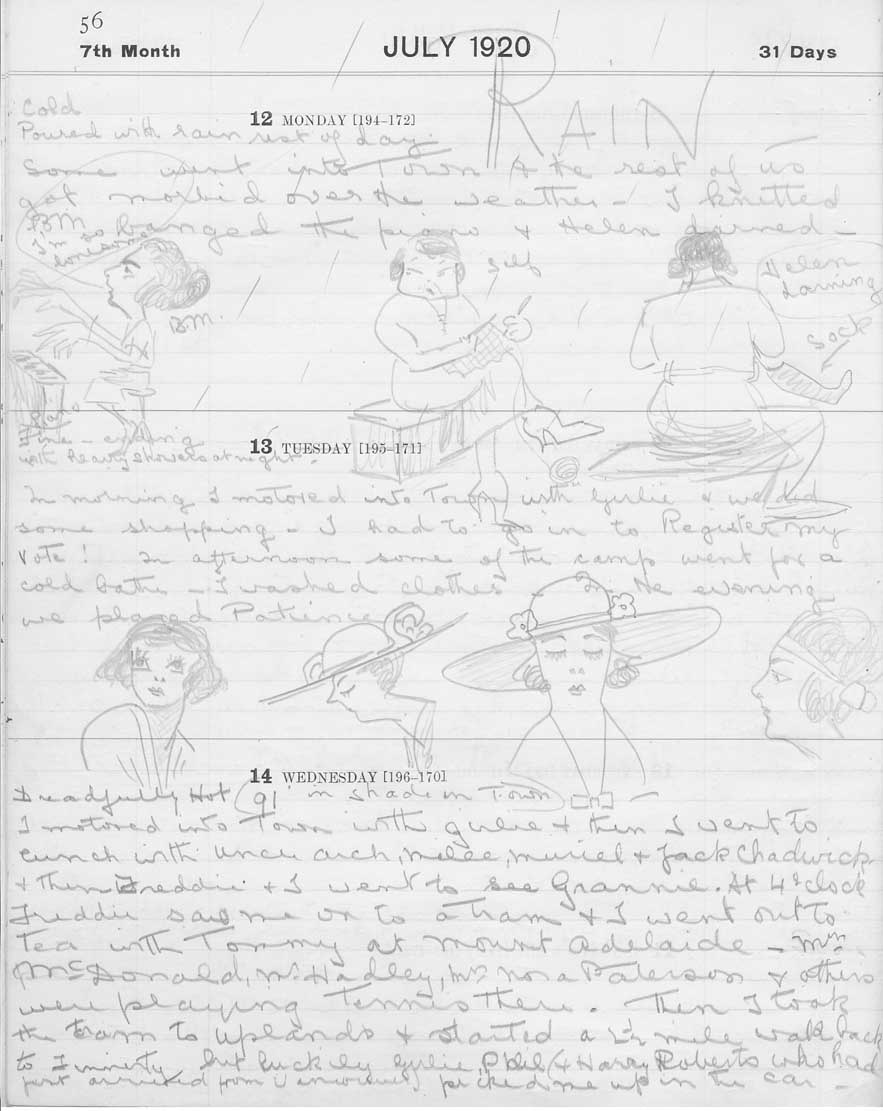 56
7th Month JULY 1920 31 Days
RAIN
Cold
12 MONDAY [194–172]
Poured with rain rest of day.
Some went into Town & the rest of us
got morbid over the weather – I knitted
BM banged the piano & Helen darned –
I'm so lonesome
Self
Helen darning
B.M.
Sock
Piano
Fine – ending
13 TUESDAY [195–171]
with heavy showers at night.
In morning I motored into Town with Gulie & we did
some shopping – I had to go in to Register my
Vote! In afternoon some of the camp went for a
cold bathe – I washed clothes – In the evening
we played Patience
14 WEDNESDAY [196–170]
Dreadfully Hot 91° in shade in Town
I motored into Town with Gulie & then I went to
lunch with Uncle Arch, Millee, Muriel & Jack Chadwick
& then Freddie & I went to see Grannie. At 4 o'clock
Freddie saw me on to a tram & I went out to
tea with Tommy at Mount Adelaide – Mrs
McDonald, Mr Hadley, Mr Nora Paterson & others
were playing tennis there. Then I took
the tram to Uplands & started a 2½ mile walk back
to but luckily Gulie Phil (& Harry Roberts who had
just arrived from Vancouver) picked me up in the car –